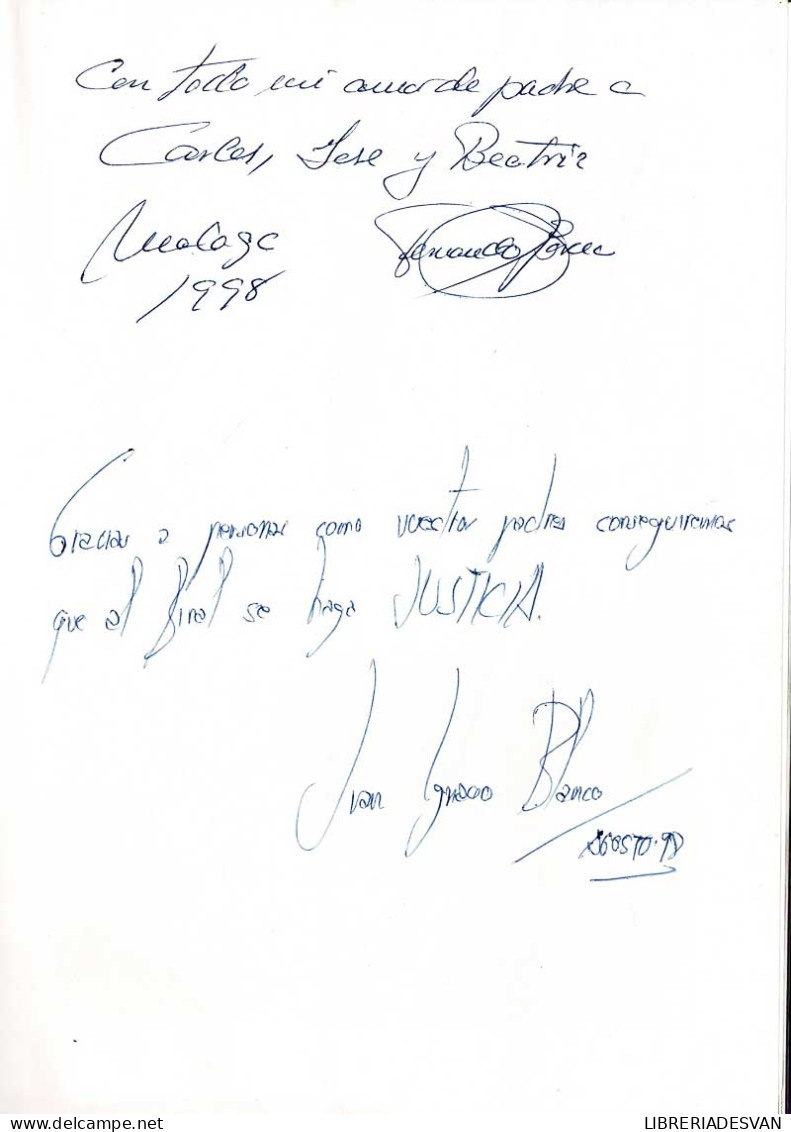 Con todo mi amor de padre a
Carlos, Jose y Beatriz
Malaga
1998
Fernando
Gracias a personas como vuestros padres conseguiremos
que al final se haga JUSTICIA.
Juan Ignacio Blanco
AGOSTO-98
delcampe.net
LIBRERIADESVAN